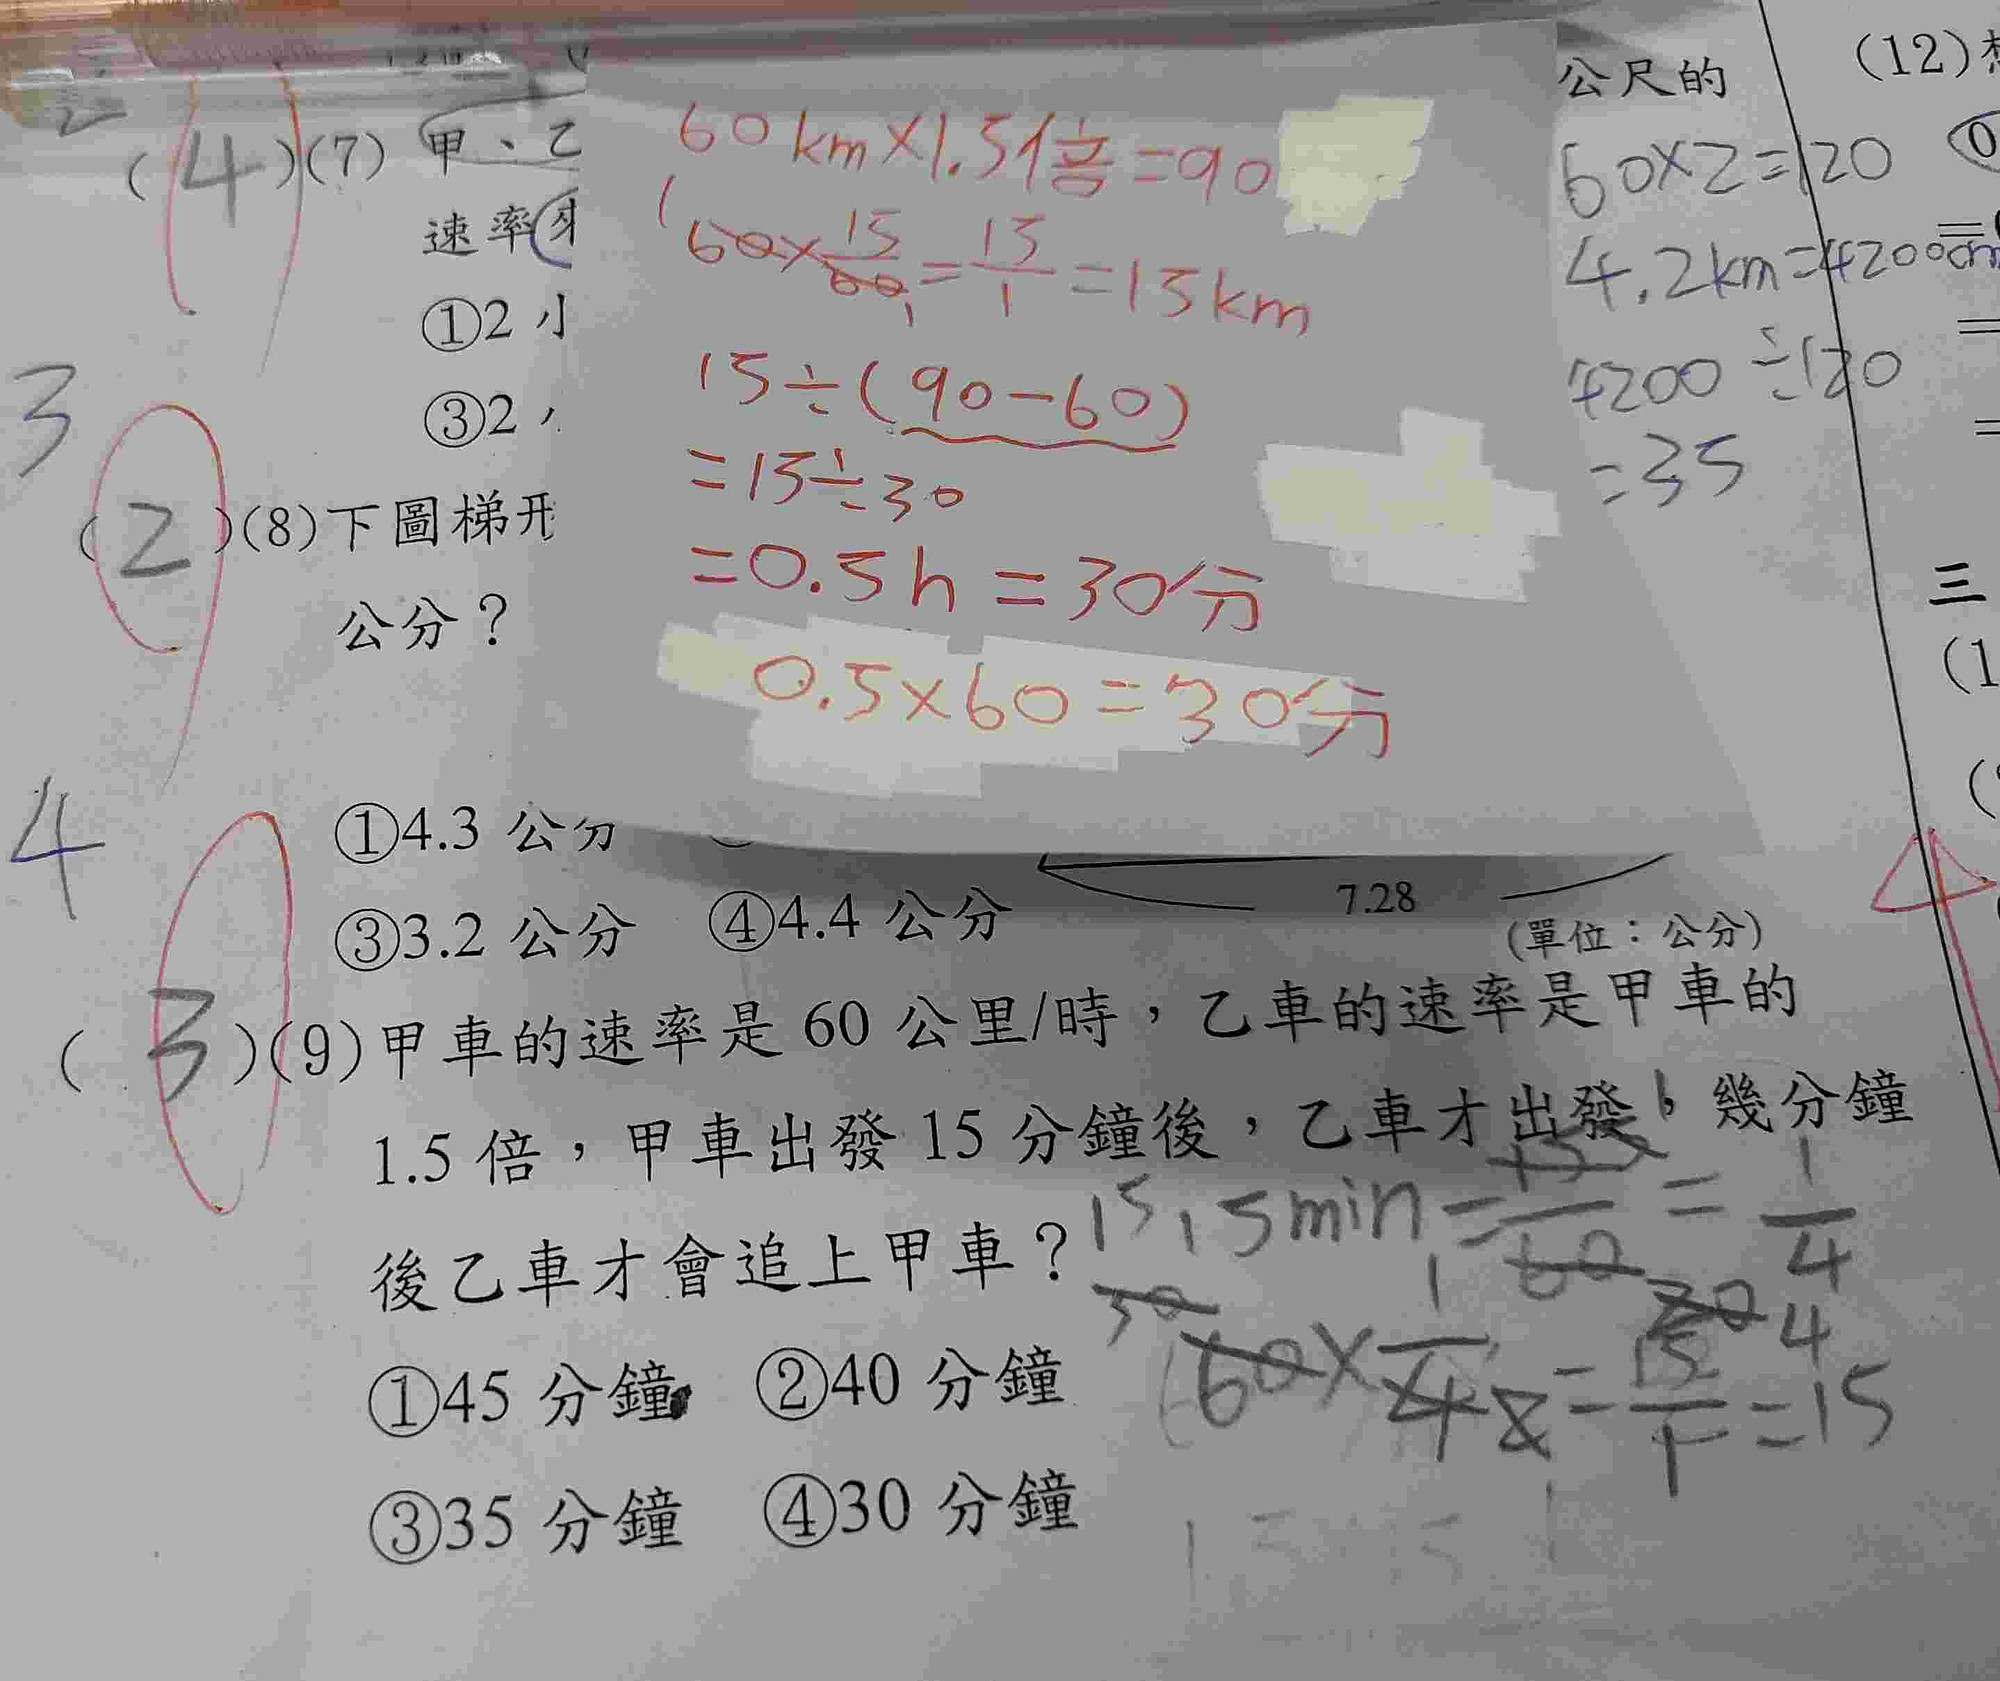 2
(4)(7) 甲、乙
速率
①2 小
③2
3
(2)(8)下圖梯形
公分？
60km×1.5倍=90
60×15/60=15/1=15km
15÷(90-60)
=15÷30
=0.5h=30分
0.5×60=30分
公尺的
60×2=120
4.2km=4200cm
4200÷120
=35
(12)
三
(1
4
①4.3 公分
③3.2 公分 ④4.4 公分
7.28
(單位：公分)
(3)(9)甲車的速率是 60 公里/時，乙車的速率是甲車的
1.5 倍，甲車出發 15 分鐘後，乙車才出發，幾分鐘
後乙車才會追上甲車？
15min=15/60=1/4
60×1/4=15/1=15
①45 分鐘 ②40 分鐘
③35 分鐘 ④30 分鐘